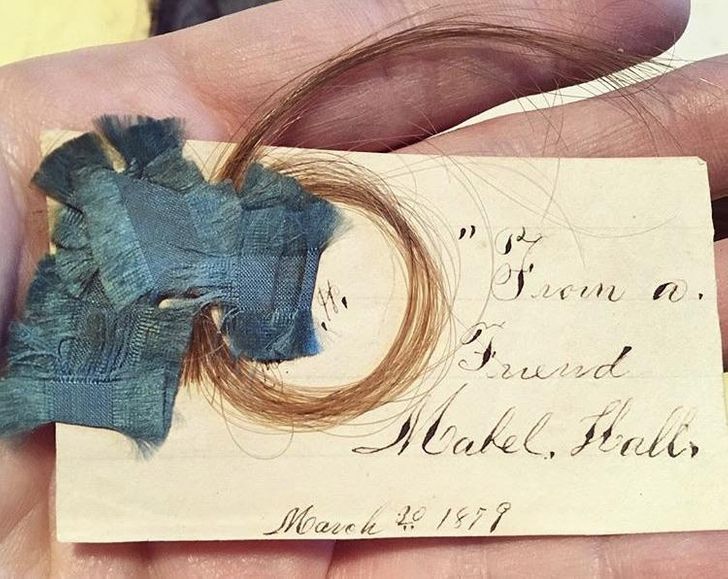 " From a.
Friend
Mabel. Hall.
March 20 1879
H.